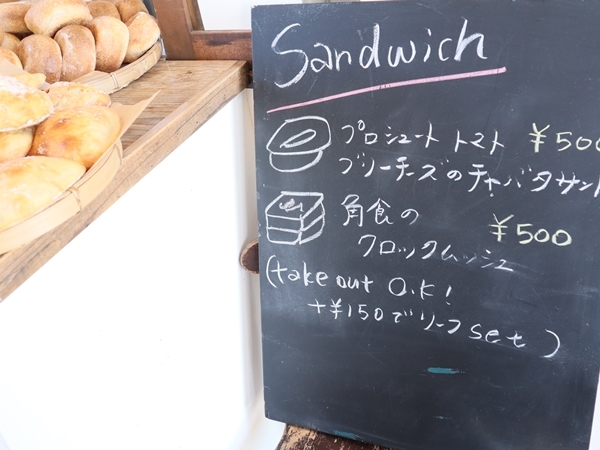 Sandwich
プロシュート トマト ¥500
ブリーチーズのチャバタサンド
角食の ¥500
クロックムッシュ
(take out O.K!
+¥150でリーフset)